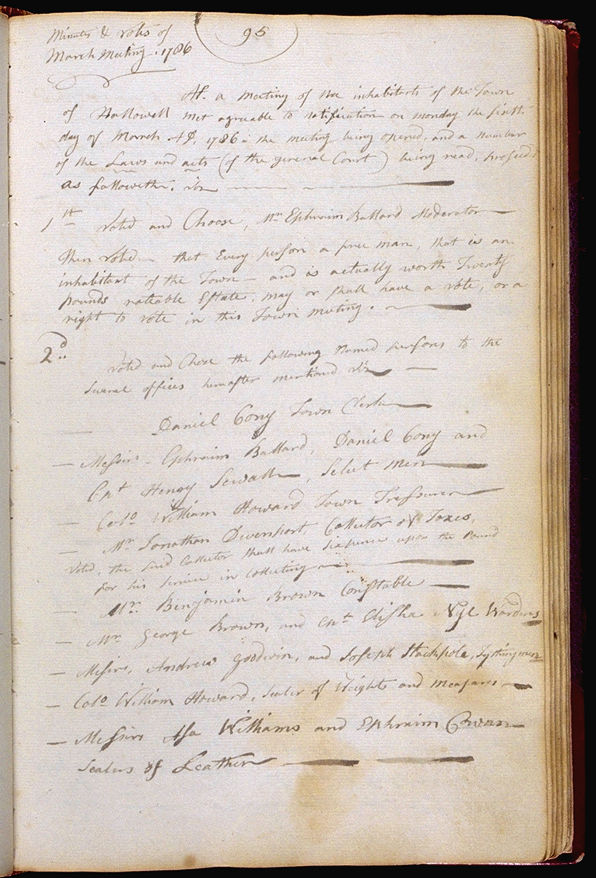 Minutes & votes of
March Meeting. 1786
95
At. a meeting of the inhabitants of the Town
of Hallowell met agreable to notification on monday the
day of March AD. 1786. the meeting being opened, and a number
of the Laws and acts (of the general Court) being read,
as followeth. viz
1st voted and Choose, Mr. Ephraim Ballard Moderator
then voted that Every person a free man, that is an
inhabitant of the Town and is actually worth Twenty
pounds rateable Estate, may or shall have a vote, or a
right to vote in this Town meeting.
2d voted and Chose the following Named persons to the
Several offices hereafter mentioned viz
Daniel Cony Town Clerk
Messirs. Ephraim Ballard, Daniel Cony and
Cpt Henry Sewall, Select Men
Colo. William Howard Town Tressurer
Mr. Jonathan Devenport, Collector of Taxes,
Voted, the said Collector shall have Sixpence upon the Pound
for his Service in Collecting
Mr. Benjamin Brown Constable
Mr. George Brown, and Cpt. Elisha Nye Wardens
Messirs, Andrew Goodwin, and Joseph Stackpole, Tythingmen
Colo. William Howard, Sealer of Weights and measures
Messirs Asa Williams and Ephraim Cowan
Sealers of Leather